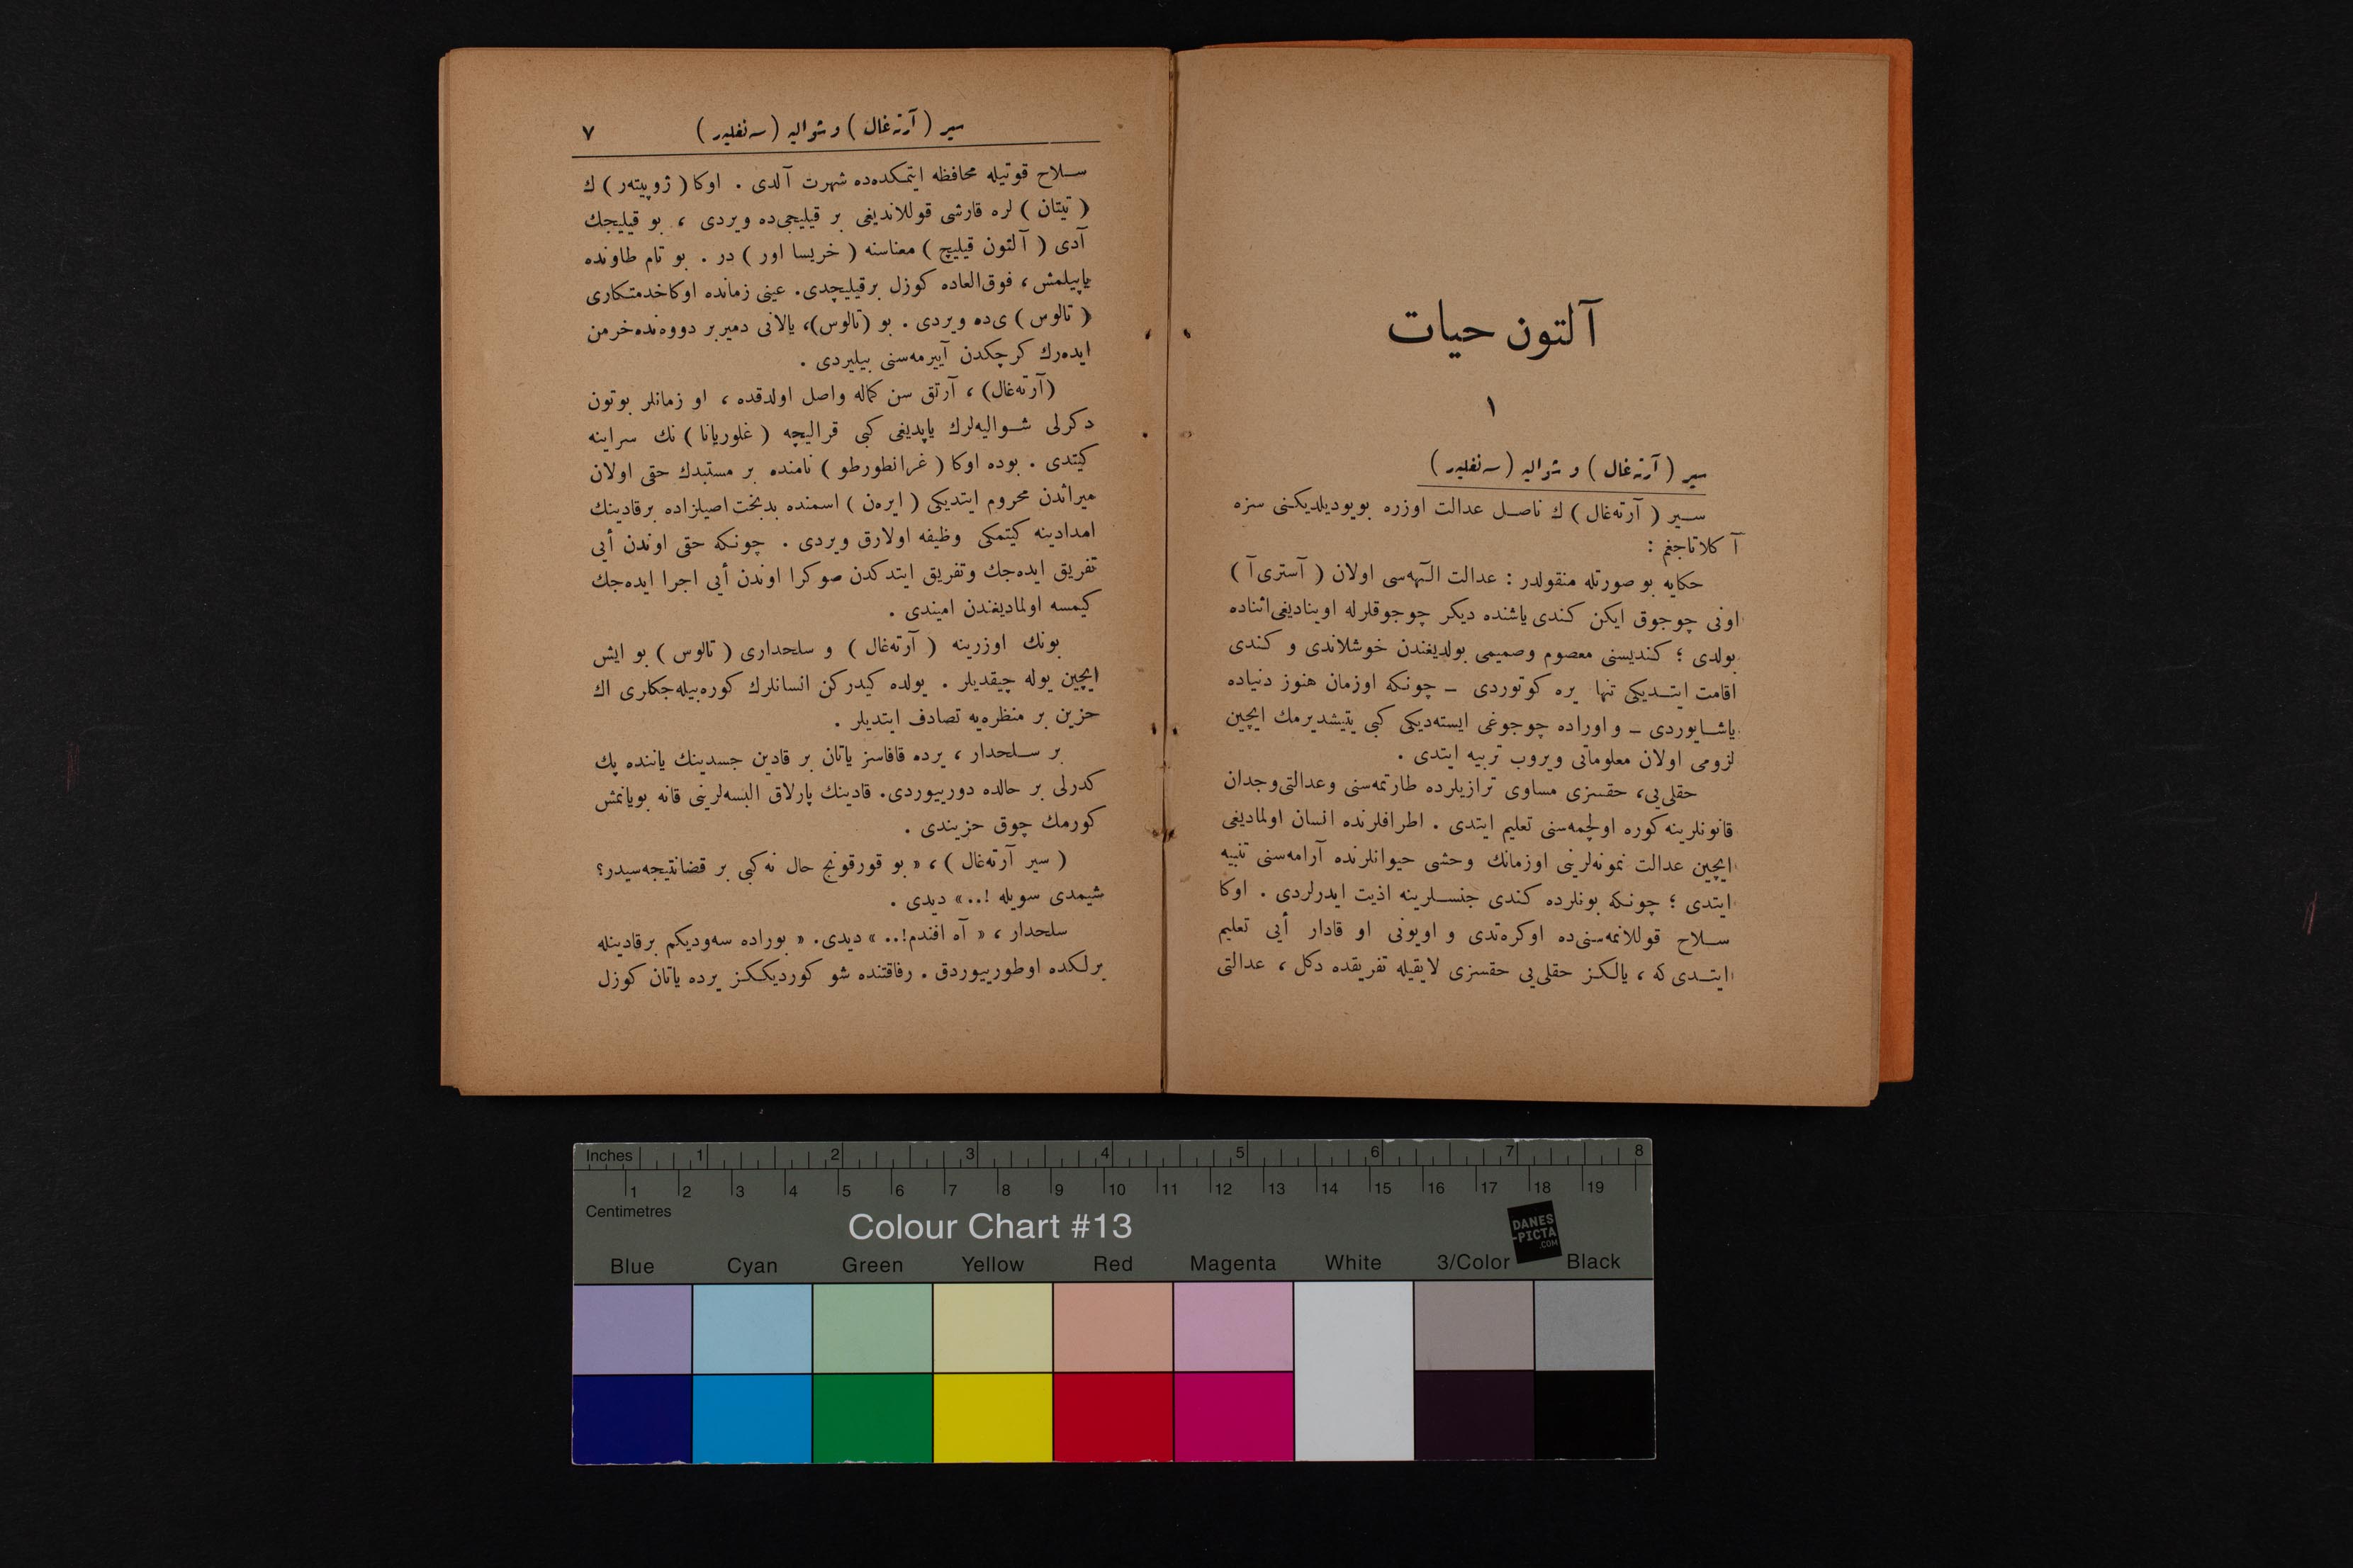 آلتون حیات
١
سیر ( آرته‌غال ) و شوالیه ( سه‌نفلیه‌ر )
سـیر ( آرته‌غال ) ك ناصـل عدالت اوزره بویودیلدیکـنی سزه
آ كلاتاجغم :
حکایه بو صورتله منقولدر : عدالت الـٓهه‌سی اولان ( آستری‌آ )
اونی چوجوق ایکن كندی یاشنده دیكر چوجوقلرله اوینادیغی‌اثناده
بولدی ؛ كندیسنی معصوم وصمیمی بولدیغندن خوشلاندی و كندی
اقامت ایتـدیکی تنها یره كوتوردی ــ چونکه اوزمان هنوز دنیاده
یاشـایوردی ــ و اوراده چوجوغی ایسته‌دیکی كبی یتیشدیرمك ایچین
لزومی اولان معلوماتی ویروب تربیه ایتدی .
حقلی‌یی، حقسزی مساوی ترازیلرده طارتمه‌سنی وعدالتی‌وجدان
قانونلرینه كوره اولچمه‌سنی تعلیم ایتدی . اطرافلرنده انسان اولمادیغی
ایچین عدالت نمونه‌لرینی اوزمانك وحشی حیوانلرنده آرامه‌سنی تنبیه
ایتدی ؛ چونکه بونلرده كندی جنسـلرینه اذیت ایدرلردی . اوكا
سـلاح قوللانمه‌سنی‌ده اوكره‌تدی و اویونی او قادار أیی تعلیم
ایتـدی كه ، یالـكـز حقلی‌یی حقسزی لایقیله تفریقده دكل ، عدالتی
سیر ( آرته‌غال ) و شوالیه ( سه‌نفلیه‌ر ) ٧
سـلاح قوتیله محافظه ایتمـكده‌ده شهرت آلدی . اوكا ( ژوپیته‌ر ) ك
( تیتان ) لره قارشی قوللاندیغی بر قیلیجی‌ده ویردی ، بو قیلیجك
آدی ( آلتون قیلیچ ) معناسنه ( خریسا اور ) در . بو تام طاونده
یاپیلمش ، فوق‌العاده كوزل برقیلیچدی . عینی زمانده اوكاخدمتـكاری
( تالوس ) ی‌ده ویردی . بو (تالوس)، یالانی دمیربر دووه‌نده‌خرمن
ایده‌رك كرچكدن آییرمه‌سنی بیلیردی .
(آرته‌غال) ، آرتق سن كماله واصل اولدقده ، او زمانلر بوتون
دكرلی شـوالیه‌لرك یاپدیغی كبی قرالیچه ( غلوریانا ) نك سراینه
كیتدی . بوده اوكا ( غرانطورطو ) نامنده بر مستبدك حقی اولان
میراثدن محروم ایتدیکی ( ایره‌ن ) اسمنده بدبخت‌اصیلزاده برقادینك
امدادینه كیتمكی وظیفه اولارق ویردی . چونـكه حقی اوندن أیی
تفریق ایده‌جك وتفریق ایتدكدن صوكرا اوندن أیی اجرا ایده‌جك
كیمسه اولمادیغندن امیندی .
بونك اوزرینه ( آرته‌غال ) و سلحداری ( تالوس ) بو ایش
ایچین یوله چیقدیلر . یولده كیدركن انسانلرك كوره‌بیله‌جكلری اك
حزین بر منظره‌یه تصادف ایتدیلر .
بر سـلحدار ، یرده قافاسز یاتان بر قادین جسدینك یاننده پك
كدرلی بر حالده دورییوردی. قادینك پارلاق البسه‌لرینی قانه بویانمش
كورمك چوق حزیندی .
( سیر آرته‌غال ) ، « بو قورقونج حال نه كبی بر قضانتیجه‌سیدر؟
شیمدی سویله !.. » دیدی .
سلحدار ، « آه افندم!.. » دیدی. « بوراده سه‌ودیكم برقادینله
برلـكده اوطورییوردق . رفاقتنده شو كوردیكـكـز یرده یاتان كوزل
Inches 1 2 3 4 5 6 7 8
1 2 3 4 5 6 7 8 9 10 11 12 13 14 15 16 17 18 19
Centimetres
Colour Chart #13
DANES
-PICTA
.COM
Blue Cyan Green Yellow Red Magenta White 3/Color Black